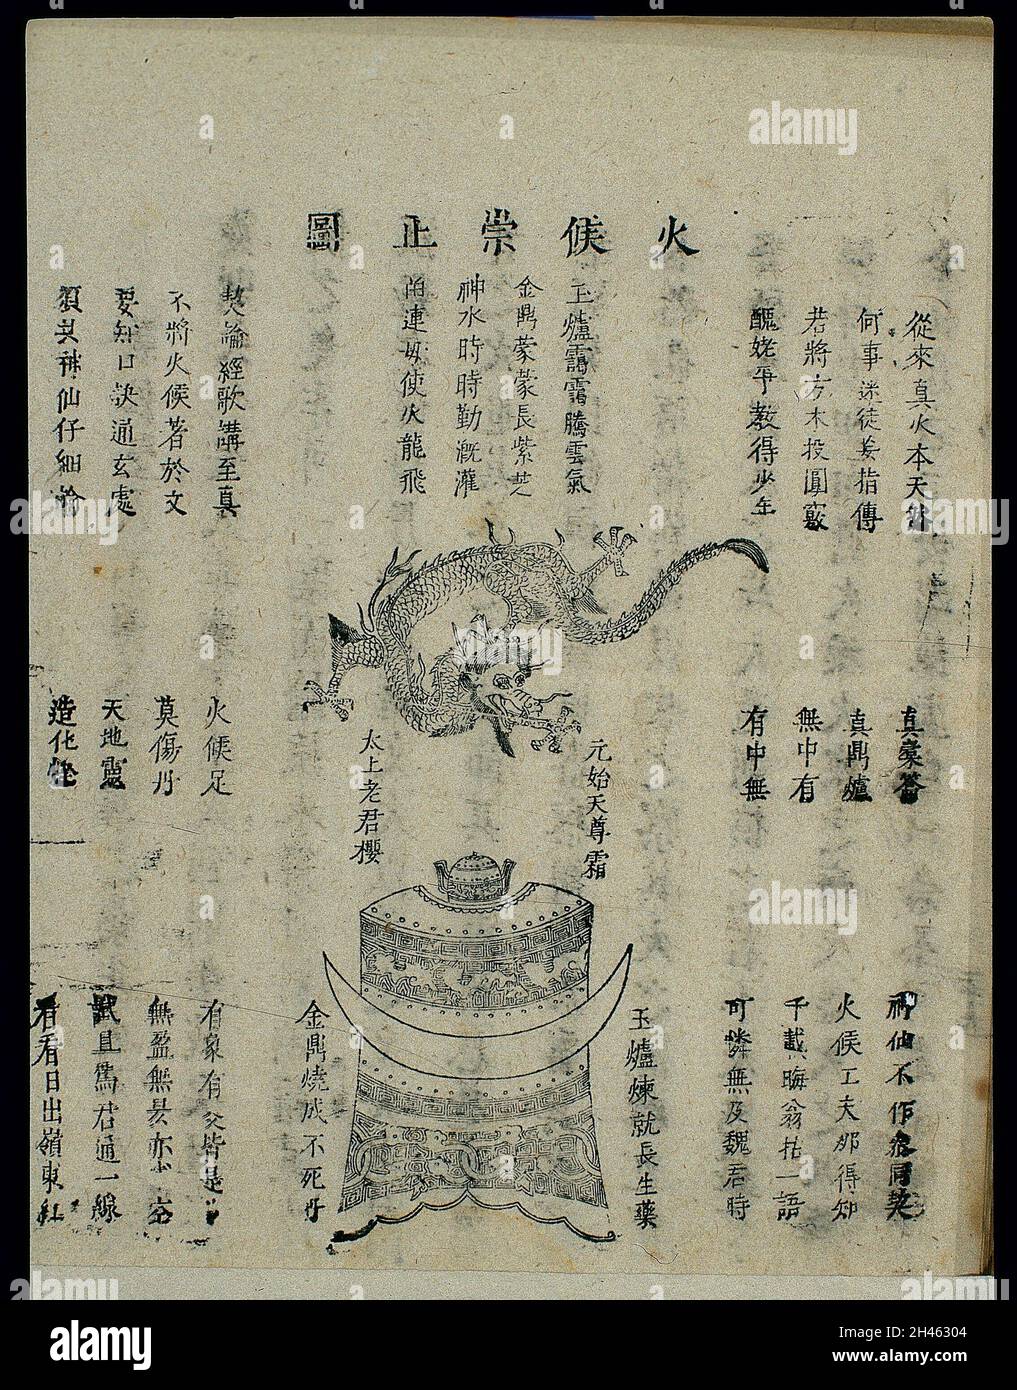 火候崇止圖
從來真火本天然
何事迷徒妄指傳
若將方木投圓竅
醜姥爭教得少年
玉爐靄靄騰雲氣
金鼎蒙蒙長紫芝
神水時時勤溉灌
留連毋使火龍飛
契論經歌講至真
不將火候著於文
要知口訣通玄處
須共神仙仔細論
真橐籥
真鼎爐
無中有
有中無
元始天尊霜
太上老君櫻
火候足
莫傷丹
天地靈
造化慳
神仙不作參同契
火候工夫那得知
千載晦翁拈一語
可憐無及魏君時
玉爐煉就長生藥
金鼎燒成不死丹
有象有爻皆是
無盈無昃亦
直為君通一線
看看日出嶺東紅
alamy
alamy
a
a
a
a
alamy
Image ID: 2H46304
www.alamy.com